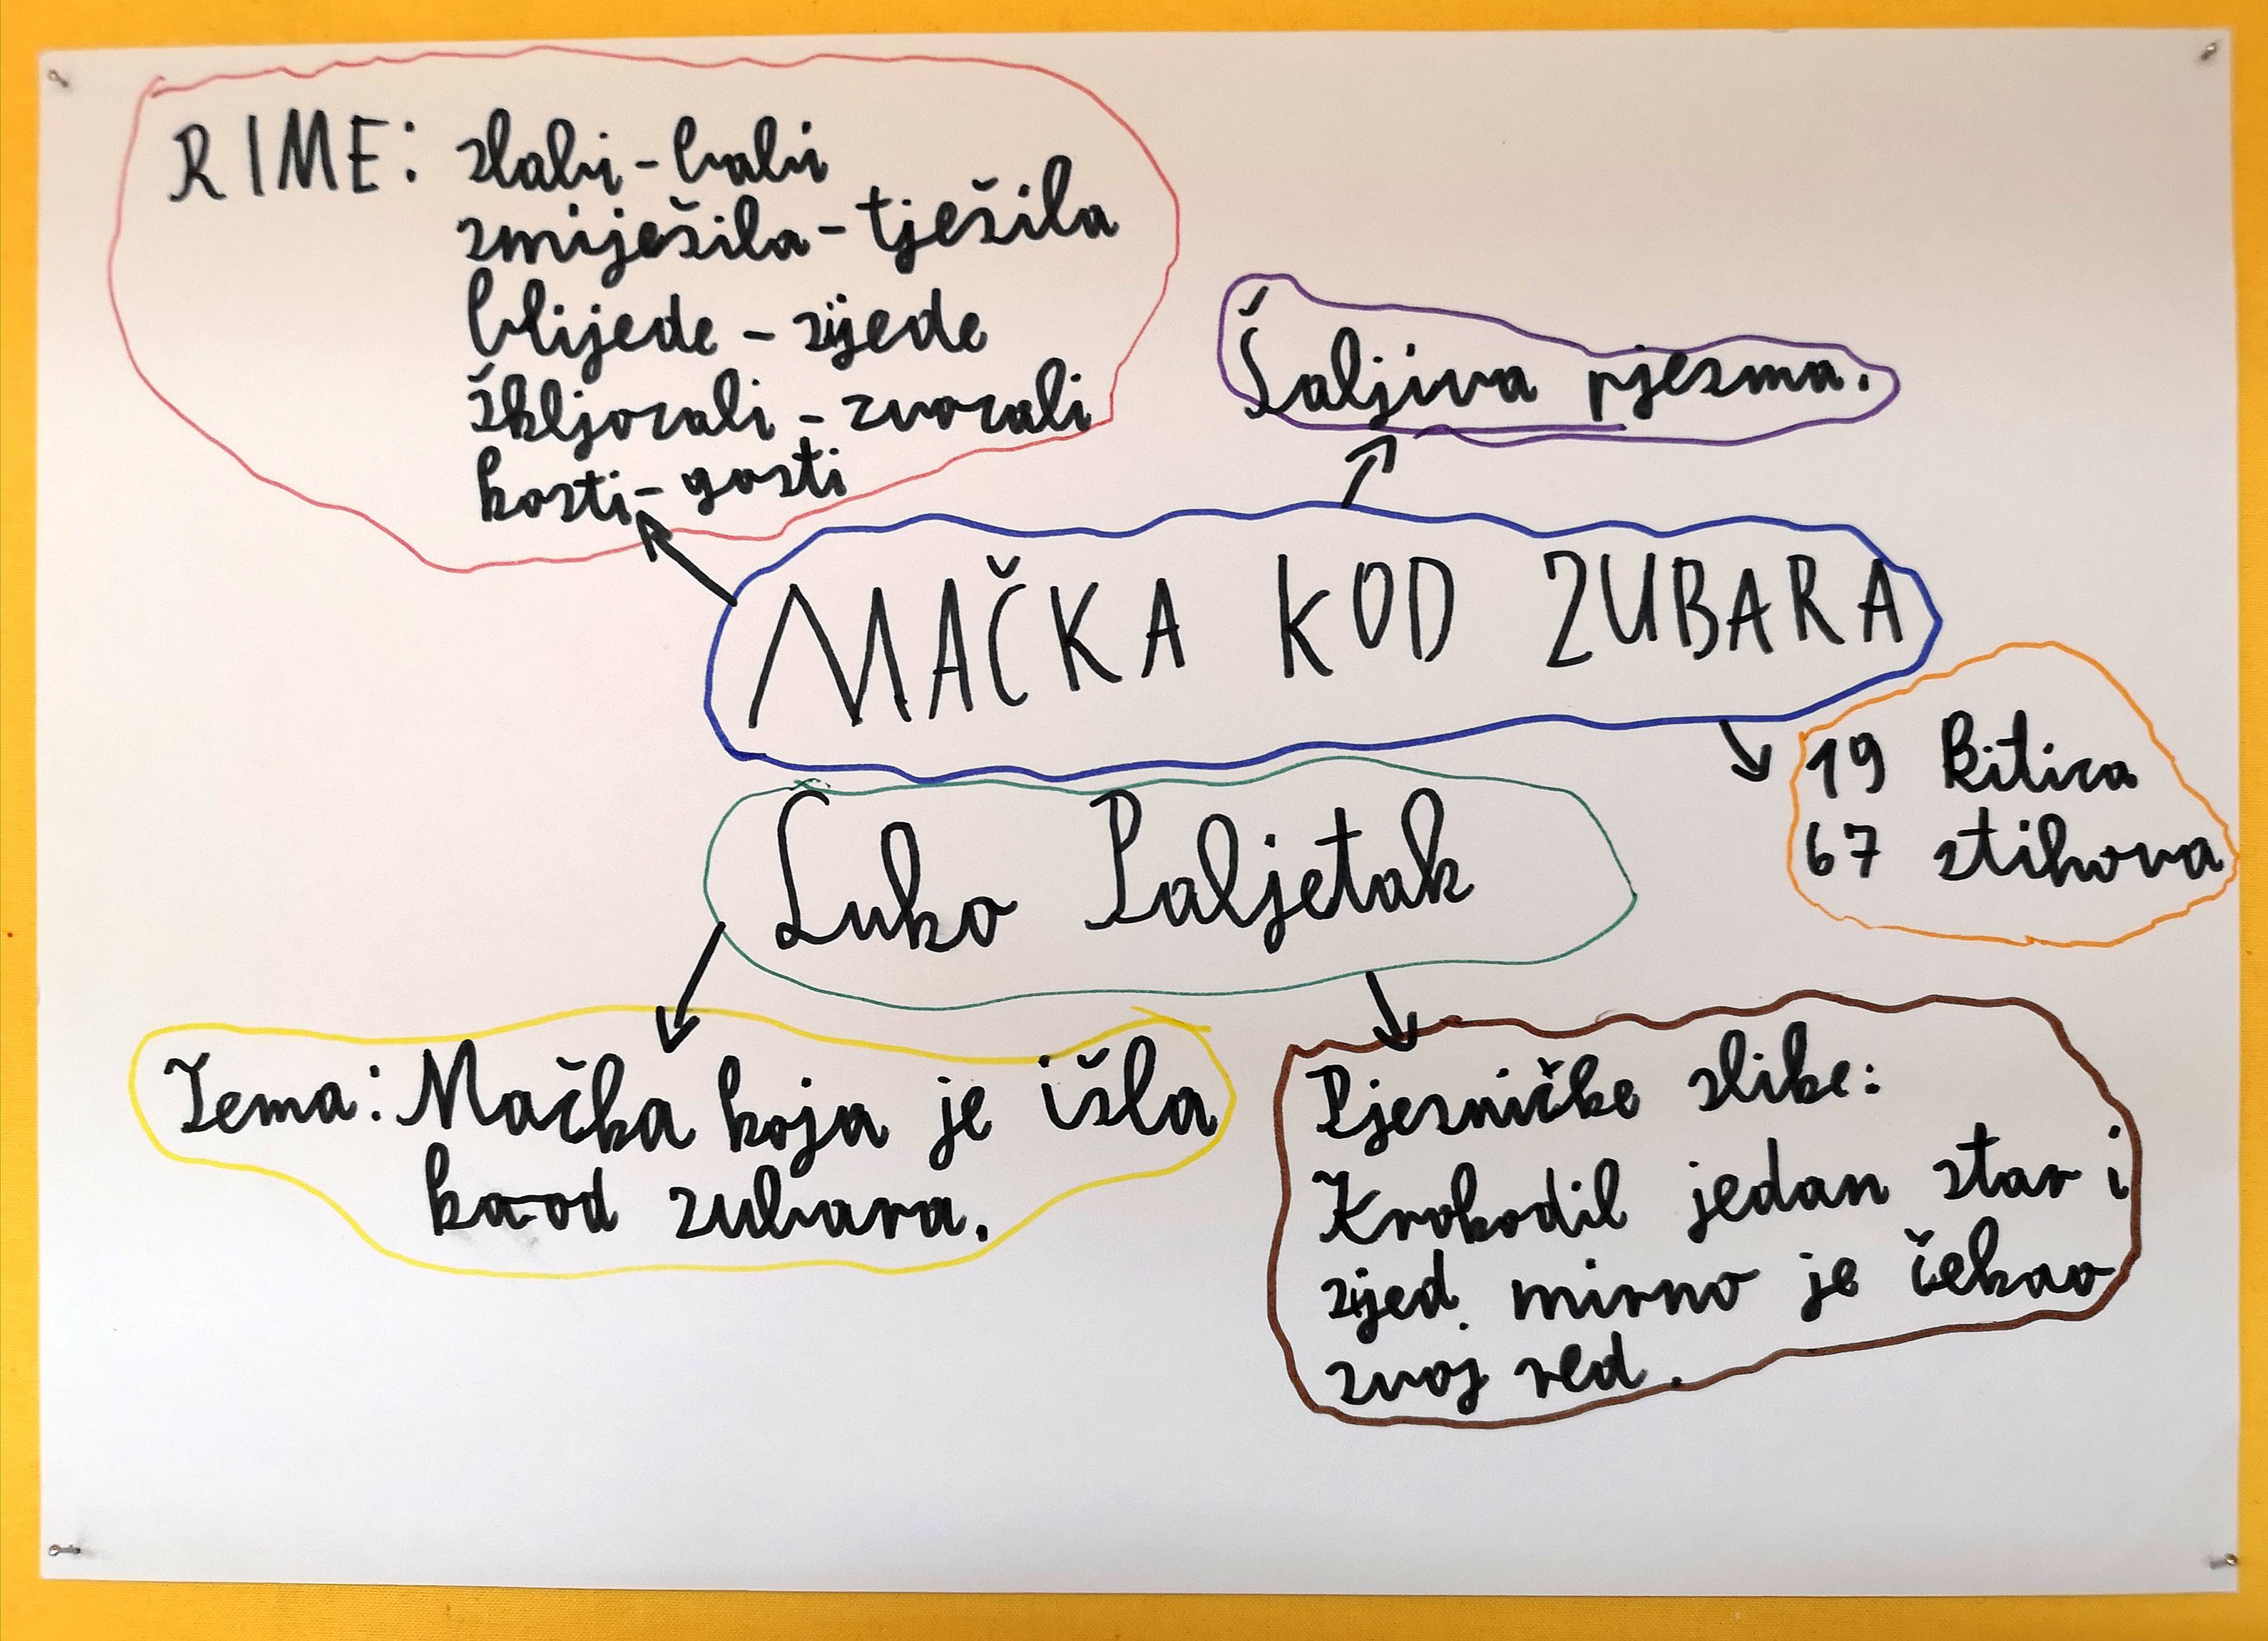 RIME: slabi - babi
smiješila - tješila
blijede - sijede
škljocali - zvocali
kosti - gosti
Šaljiva pjesma.
MAČKA KOD ZUBARA
19 kitica
67 stihova
Luko Paljetak
Tema: Mačka koja je išla
kod zubara.
Pjesničke slike:
Krokodil jedan star i
sijed mirno je čekao
svoj red.